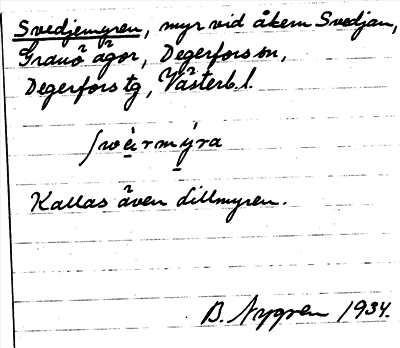 Svedjemyren, myr vid åkern Svedjan,
Granö ägor, Degerfors sn,
Degerfors tg, Västerb. l.
Kallas även Lillmyren.
B. Nygren 1934.